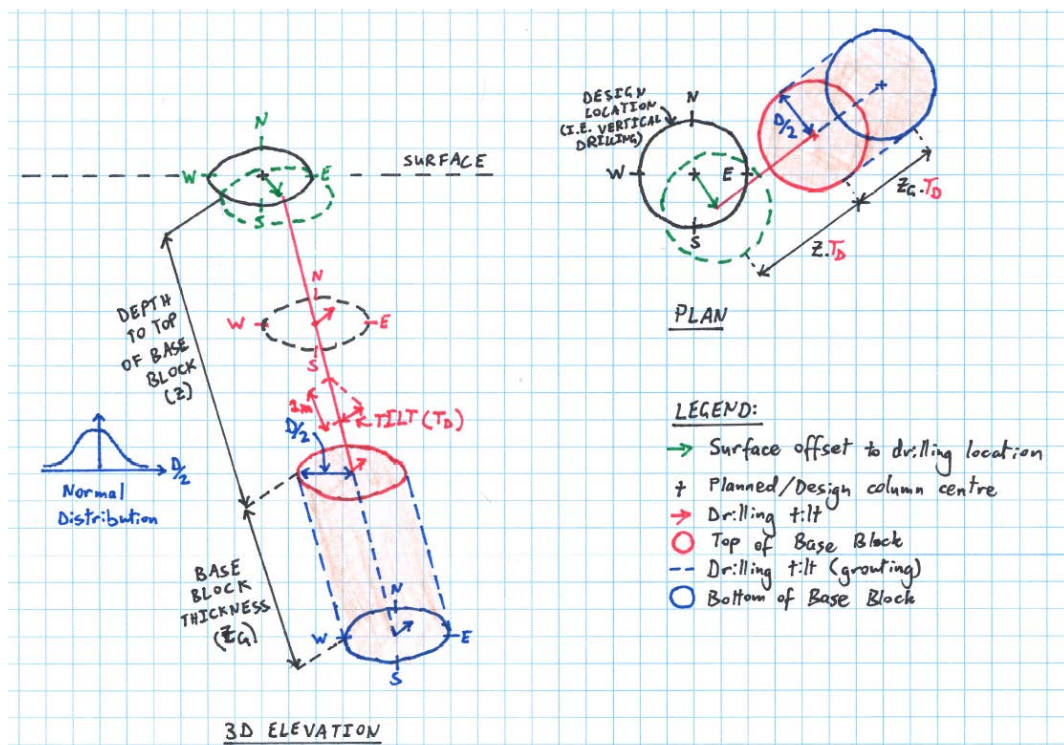 N
W
E
S
SURFACE
DEPTH
TO TOP
OF BASE
BLOCK
(Z)
N
W
E
S
1m
TILT (TD)
D/2
D/2
Normal
Distribution
BASE
BLOCK
THICKNESS
(ZG)
N
W
E
S
3D ELEVATION
DESIGN
LOCATION
(I.E. VERTICAL
DRILLING)
N
W
E
S
D/2
ZG.TD
Z.TD
PLAN
LEGEND:
Surface offset to drilling location
Planned/Design column centre
Drilling tilt
Top of Base Block
Drilling tilt (grouting)
Bottom of Base Block